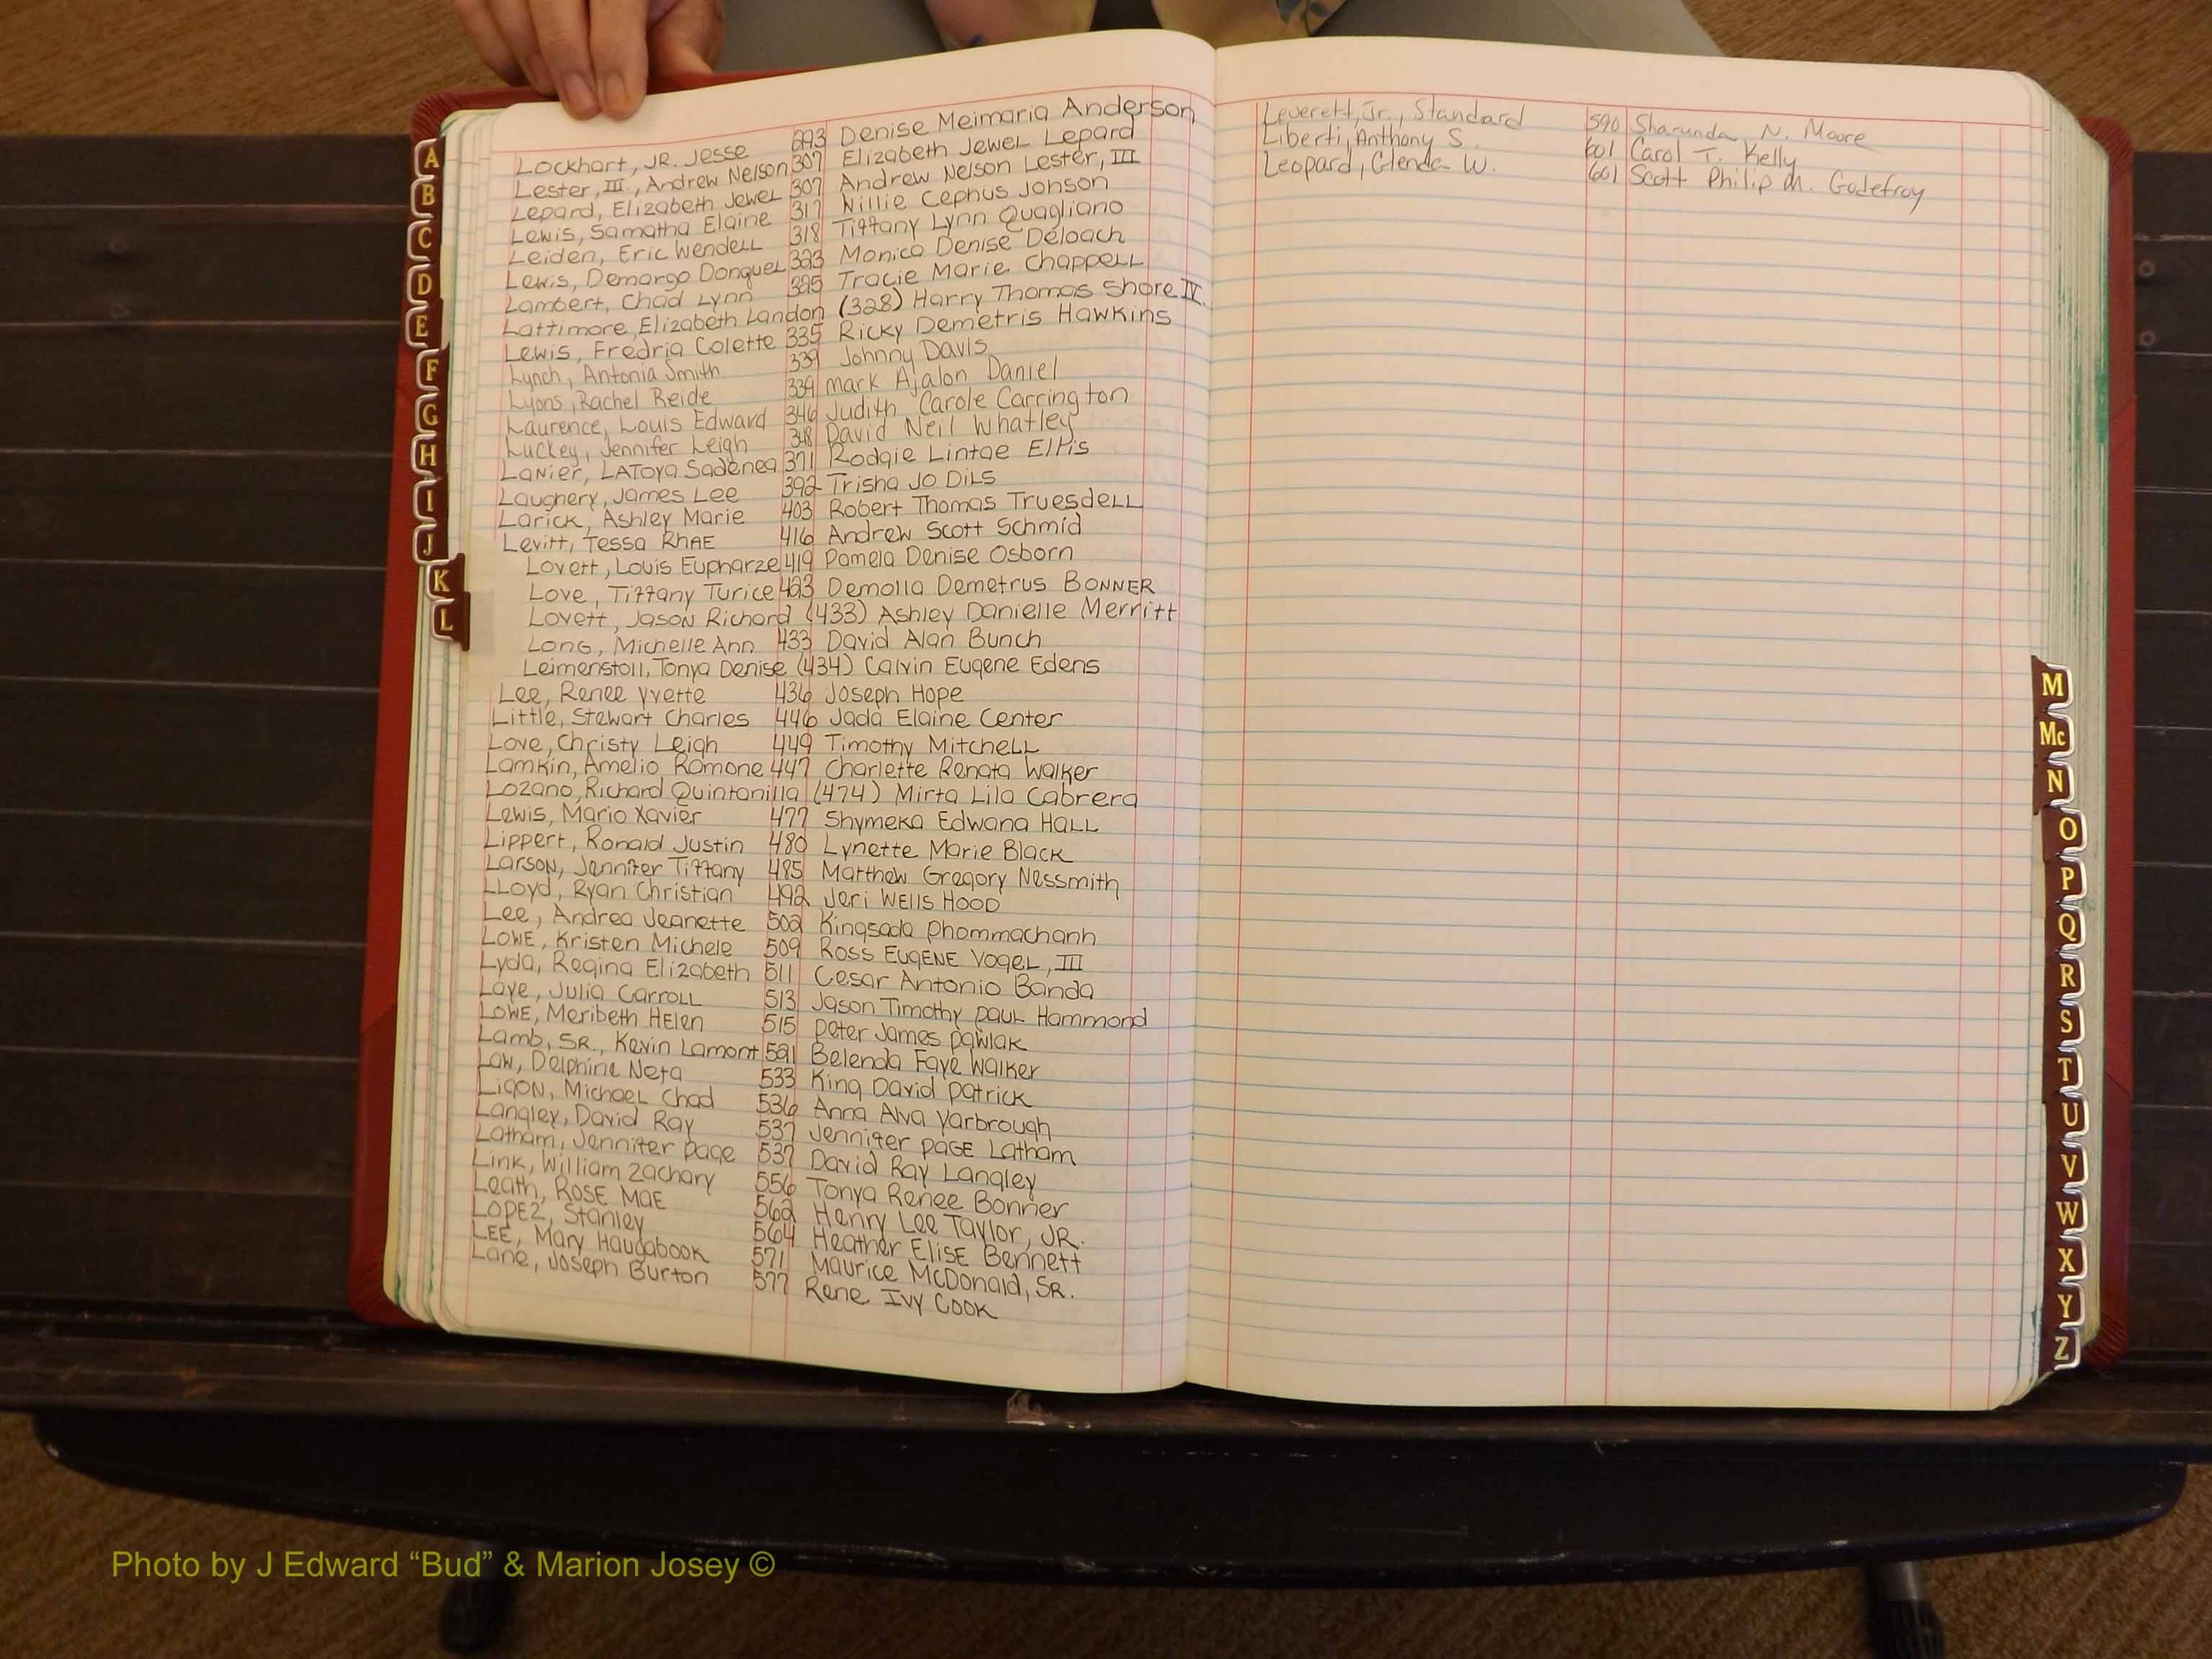 Lockhart, JR. Jesse 293 Denise Meimaria Anderson
Lester, III., Andrew Nelson 307 Elizabeth Jewel Lepard
Lepard, Elizabeth Jewel 307 Andrew Nelson Lester, III
Lewis, Samatha Elaine 317 Willie Cephus Johson
Leiden, Eric Wendell 318 Tiffany Lynn Quagliano
Lewis, Demargo Donquel 323 Monica Denise Deloach
Lambert, Chad Lynn 325 Tracie Marie Chappell
Lattimore, Elizabeth Landon (328) Harry Thomas Shore IV.
Lewis, Fredria Colette 335 Ricky Demetris Hawkins
Lynch, Antonia Smith 339 Johnny Davis
Lyons, Rachel Reide 339 Mark Ajalon Daniel
Laurence, Louis Edward 346 Judith Carole Carrington
Luckey, Jennifer Leigh 348 David Neil Whatley
Lanier, LAToya Sadenea 371 Rodgie Lintae Ellis
Laughery, James Lee 392 Trisha Jo Dils
Larick, Ashley Marie 403 Robert Thomas Truesdell
Levitt, Tessa RhAE 416 Andrew Scott Schmid
Lovett, Louis Eupharze 419 Pamela Denise Osborn
Love, Tiffany Turice 423 Demolla Demetrus BONNER
Lovett, Jason Richard (433) Ashley Danielle Merritt
Long, Michelle Ann 433 David Alan Bunch
Leimenstoll, Tonya Denise (434) Calvin Eugene Edens
Lee, Renee Yvette 436 Joseph Hope
Little, Stewart Charles 446 Jada Elaine Center
Love, Christy Leigh 449 Timothy Mitchell
Lamkin, Amelio Romone 447 Charlette Renata Walker
Lozano, Richard Quintanilla (474) Mirta Lila Cabrera
Lewis, Mario Xavier 477 Shymeka Edwana HALL
Lippert, Ronald Justin 480 Lynette Marie Black
Larson, Jennifer Tiffany 485 Matthew Gregory Nessmith
LLoyd, Ryan Christian 492 Jeri WELLS HOOD
Lee, Andrea Jeanette 502 Kingsada Phommachanh
LOWE, Kristen Michele 509 Ross EugENE Vogel, III
Lyda, Regina Elizabeth 511 Cesar Antonio Banda
Laye, Julia Carroll 513 Jason Timothy Paul Hammond
LOWE, Meribeth Helen 515 Peter James Pawlak
Lamb, SR., Kevin Lamont 521 Belenda Faye Walker
Law, Delphine Neta 533 King David Patrick
Ligon, Michael Chad 536 Anna Alva Yarbrough
Langley, David Ray 537 Jennifer PAGE Latham
Latham, Jennifer Page 537 David Ray Langley
Link, William Zachary 556 Tonya Renee Bonner
Leath, ROSE MAE 562 Henry Lee Taylor, JR.
LOPEZ, Stanley 564 Heather EliSE Bennett
LEE, Mary Haugabook 571 Maurice McDonald, SR.
Lane, Joseph Burton 577 Rene Ivy Cook
Leverett, Jr., Standard 590 Sharunda N. Moore
Liberti, Anthony S. 601 Carol T. Kelly
Leopard, Glenda W. 601 Scott Philip M. Godefroy
A
B
C
D
E
F
G
H
I
J
K
L
M
Mc
N
O
P
Q
R
S
T
U
V
W
X
Y
Z
Photo by J Edward “Bud” & Marion Josey ©